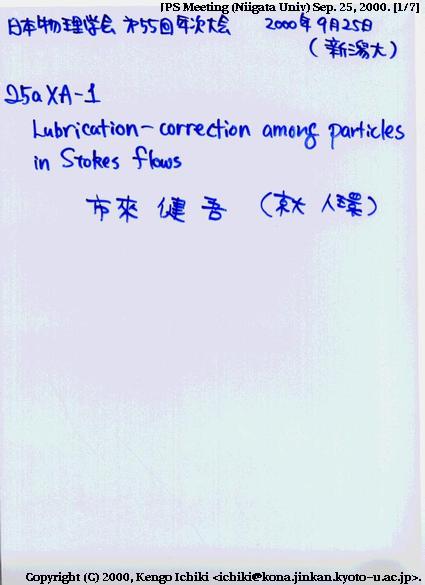 JPS Meeting (Niigata Univ) Sep. 25, 2000. [1/7]
日本物理学会 第55回年次大会 2000年9月25日
(新潟大)
25aXA-1
Lubrication-correction among particles
in Stokes flows
市來 健吾 (京大 人環)
Copyright (C) 2000, Kengo Ichiki <ichiki@kona.jinkan.kyoto-u.ac.jp>.